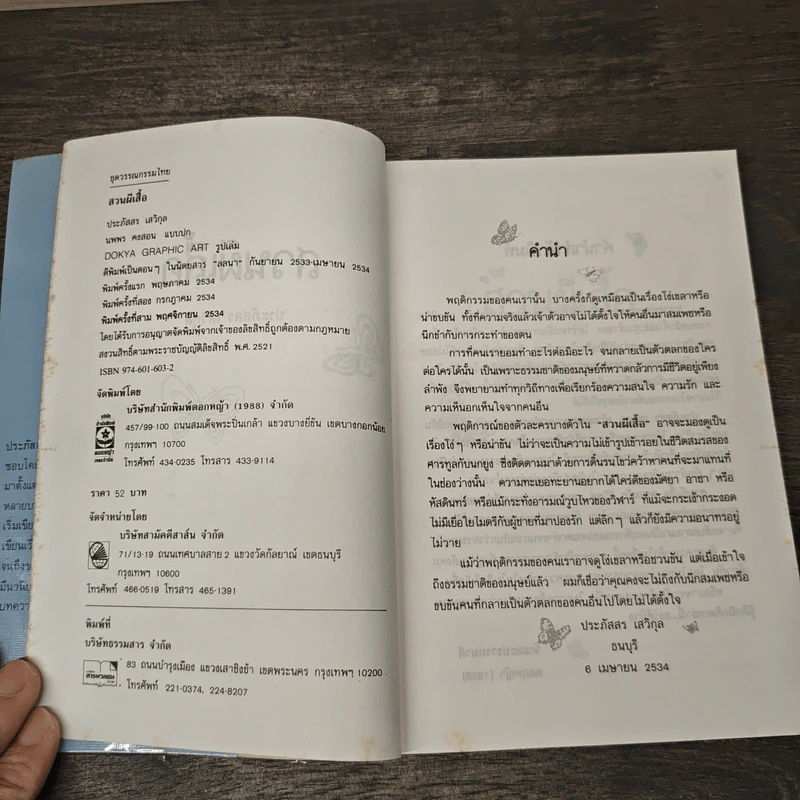 ชุดวรรณกรรมไทย
สวนผีเสื้อ
ประภัสสร เสวิกุล
นพพร คงสอน แบบปก
DOKYA GRAPHIC ART รูปเล่ม
ตีพิมพ์เป็นตอนๆ ในนิตยสาร "ลลนา" กันยายน 2533-เมษายน 2534
พิมพ์ครั้งแรก พฤษภาคม 2534
พิมพ์ครั้งที่สอง กรกฎาคม 2534
พิมพ์ครั้งที่สาม พฤศจิกายน 2534
โดยได้รับการอนุญาตจัดพิมพ์จากเจ้าของลิขสิทธิ์ถูกต้องตามกฎหมาย
สงวนสิทธิ์ตามพระราชบัญญัติลิขสิทธิ์ พ.ศ. 2521
ISBN 974-601-603-2
จัดพิมพ์โดย
บริษัทสำนักพิมพ์ดอกหญ้า (1988) จำกัด
457/99-100 ถนนสมเด็จพระปิ่นเกล้า แขวงบางยี่ขัน เขตบางกอกน้อย
กรุงเทพฯ 10700
โทรศัพท์ 434-0235 โทรสาร 433-9114
ราคา 52 บาท
จัดจำหน่ายโดย
บริษัทสามัคคีสาส์น จำกัด
71/13-19 ถนนเทศบาลสาย 2 แขวงวัดกัลยาณ์ เขตธนบุรี
กรุงเทพฯ 10600
โทรศัพท์ 466-0519 โทรสาร 465-1391
พิมพ์ที่
บริษัทธรรมสาร จำกัด
83 ถนนบำรุงเมือง แขวงเสาชิงช้า เขตพระนคร กรุงเทพฯ 10200
โทรศัพท์ 221-0374, 224-8207
คำนำ
พฤติกรรมของคนเรานั้น บางครั้งก็ดูเหมือนเป็นเรื่องโง่เขลาหรือ
น่าขบขัน ทั้งที่ความจริงแล้วเจ้าตัวอาจไม่ได้ตั้งใจให้คนอื่นมาสมเพชหรือ
นึกขำกับการกระทำของตน
การที่คนเรายอมทำอะไรต่อมิอะไร จนกลายเป็นตัวตลกของใคร
ต่อใครได้นั้น เป็นเพราะธรรมชาติของมนุษย์ที่หวาดกลัวการมีชีวิตอยู่เพียง
ลำพัง จึงพยายามทำทุกวิถีทางเพื่อเรียกร้องความสนใจ ความรัก และ
ความเห็นอกเห็นใจจากคนอื่น
พฤติการณ์ของตัวละครบางตัวใน "สวนผีเสื้อ" อาจจะมองดูเป็น
เรื่องโง่ๆ หรือน่าขัน ไม่ว่าจะเป็นความไม่เข้ารูปเข้ารอยในชีวิตสมรสของ
ศารทูลกับนกยูง ซึ่งติดตามมาด้วยการดิ้นรนไขว่คว้าหาคนที่จะมาแทนที่
ในช่องว่างนั้น ความทะเยอทะยานอยากได้ใคร่ดีของมัศยา อาชา หรือ
หัสดินทร์ หรือแม้กระทั่งอารมณ์วูบไหวของวิฬาร์ ที่แม้จะกระเง้ากระงอด
ไม่มีเยื่อใยไมตรีกับผู้ชายที่มาปองรัก แต่ลึกๆ แล้วก็ยังมีความอนาทรอยู่
ไม่วาย
แม้ว่าพฤติกรรมของคนเราอาจดูโง่เขลาหรือชวนขัน แต่เมื่อเข้าใจ
ถึงธรรมชาติของมนุษย์แล้ว ผมก็เชื่อว่าคุณคงจะไม่ถึงกับนึกสมเพชหรือ
ขบขันคนที่กลายเป็นตัวตลกของคนอื่นไปโดยไม่ได้ตั้งใจ
ประภัสสร เสวิกุล
ธนบุรี
6 เมษายน 2534